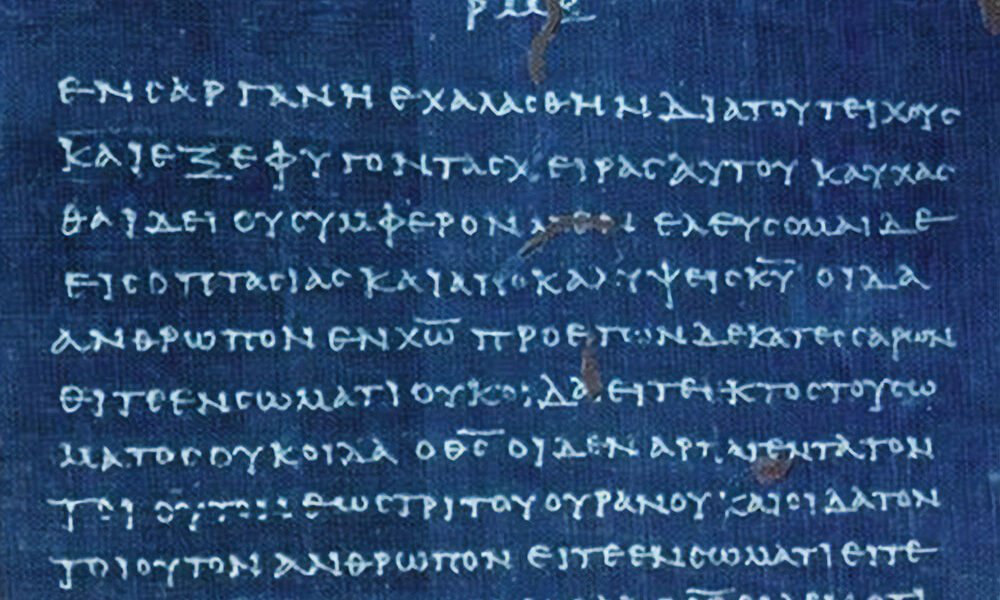 ΕΝ ϹΑΡΓΑΝΗ ΕΧΑΛΑϹΘΗΝ ΔΙΑ ΤΟΥ ΤΕΙΧΟΥϹ
ΚΑΙ ΕΞΕΦΥΓΟΝ ΤΑϹ ΧΕΙΡΑϹ ΑΥΤΟΥ ΚΑΥΧΑϹ
ΘΑΙ ΔΕΙ ΟΥ ϹΥΜΦΕΡΟΝ ΕΛΕΥϹΟΜΑΙ ΔΕ
ΕΙϹ ΟΠΤΑϹΙΑϹ ΚΑΙ ΑΠΟΚΑΛΥΨΕΙϹ Κ̅Υ̅ ΟΙΔΑ
ΑΝΘΡΩΠΟΝ ΕΝ Χ̅Ω̅ ΠΡΟ ΕΤΩΝ ΔΕΚΑΤΕϹϹΑΡΩΝ
ΕΙΤΕ ΕΝ ϹΩΜΑΤΙ ΟΥΚ ΟΙΔΑ ΕΙΤΕ ΕΚΤΟϹ ΤΟΥ ϹΩ
ΜΑΤΟϹ ΟΥΚ ΟΙΔΑ Ο Θ̅Ϲ̅ ΟΙΔΕΝ ΑΡΠΑΓΕΝΤΑ ΤΟΝ
ΤΟΙΟΥΤΟΝ ΕΩϹ ΤΡΙΤΟΥ ΟΥΡΑΝΟΥ ΚΑΙ ΟΙΔΑ ΤΟΝ
ΤΟΙΟΥΤΟΝ ΑΝΘΡΩΠΟΝ ΕΙΤΕ ΕΝ ϹΩΜΑΤΙ ΕΙΤΕ